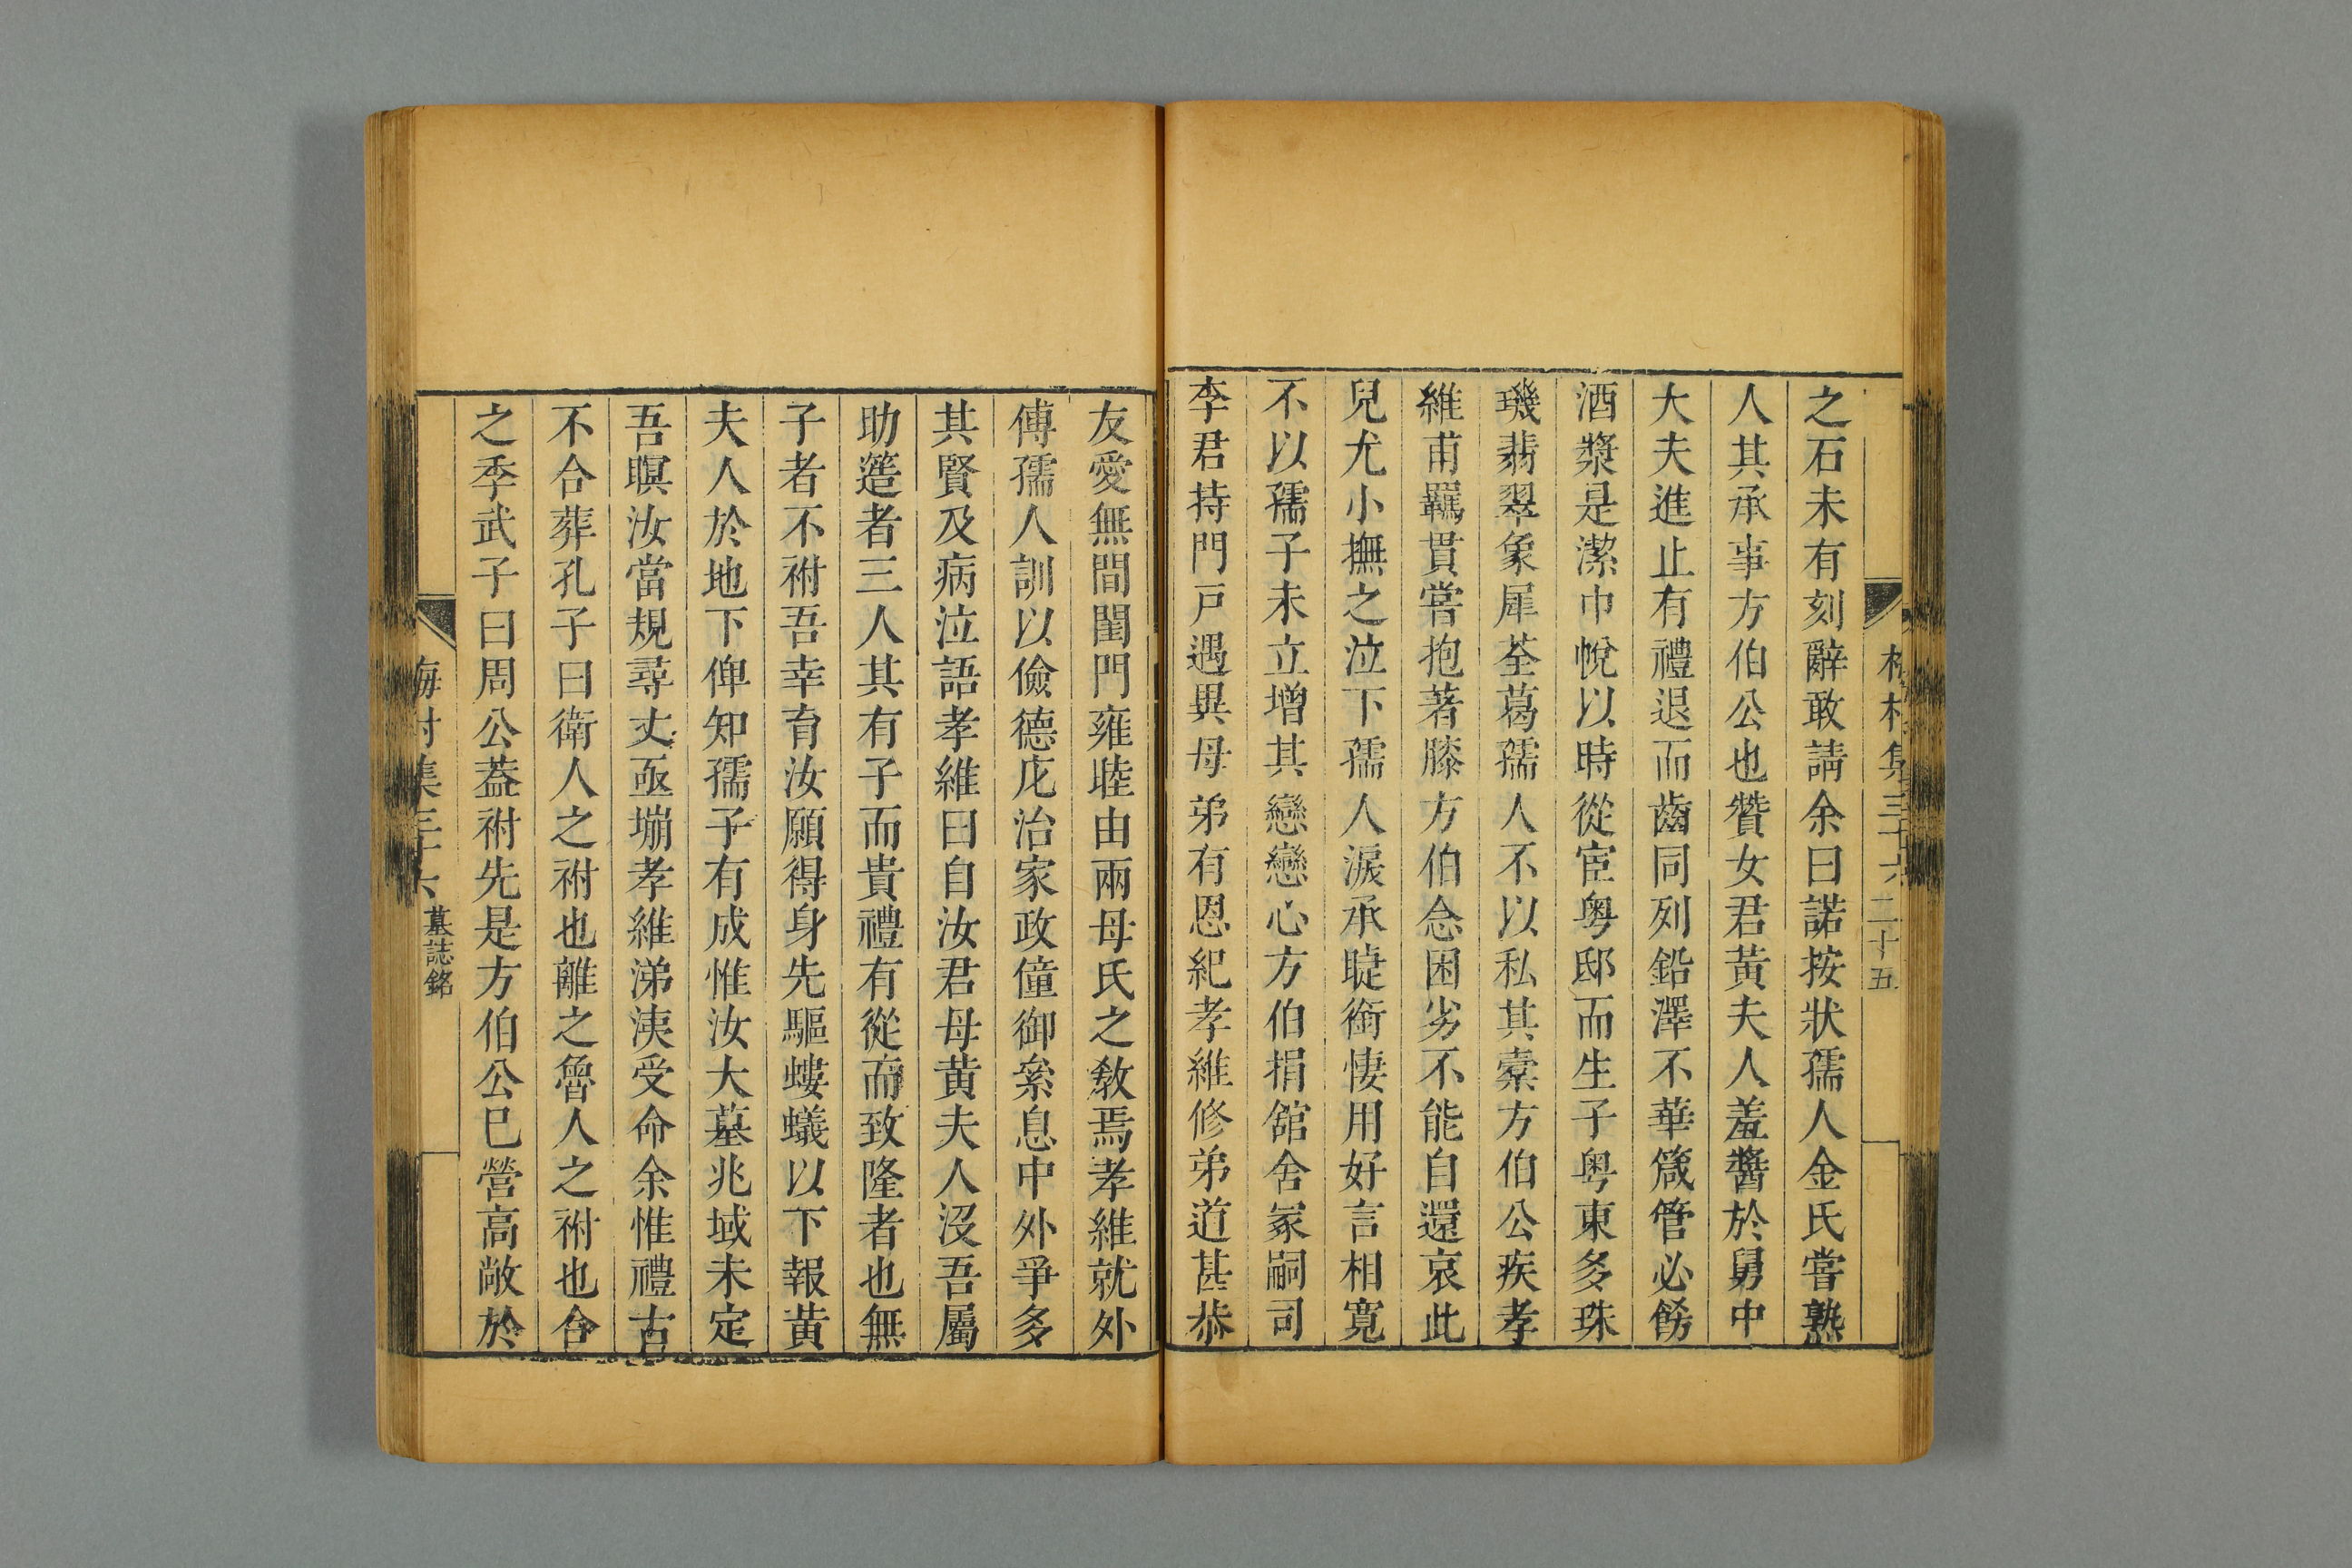 之石未有刻辭敢請余曰諾按狀孺人金氏嘗熟
人其承事方伯公也贊女君黃夫人羞醬於舅中
大夫進止有禮退而齒同列鉛澤不華箴管必餝
酒漿是潔巾帨以時從宦粤邸而生子粤東多珠
璣翡翠象犀荃葛孺人不以私其橐方伯公疾孝
維甫羈貫嘗抱著膝方伯念困劣不能自還哀此
兒尤小撫之泣下孺人淚承睫銜悽用好言相寬
不以孺子未立增其戀戀心方伯捐舘舍冡嗣司
李君持門戸遇異母弟有恩紀孝維修弟道甚恭
梅村集三十六
二十五
友愛無間閨門雍睦由兩母氏之敎焉孝維就外
傅孺人訓以儉德庀治家政僮御絫息中外爭多
其賢及病泣語孝維曰自汝君母黃夫人沒吾屬
助簉者三人其有子而貴禮有從而致隆者也無
子者不祔吾幸育汝願得身先驅螻蟻以下報黃
夫人於地下俾知孺子有成惟汝大墓兆域未定
吾瞑汝當規尋丈亟堋孝維涕洟受命余惟禮古
不合葬孔子曰衛人之祔也離之魯人之祔也合
之季武子曰周公葢祔先是方伯公巳營高敞於
梅村集三十六
墓誌銘